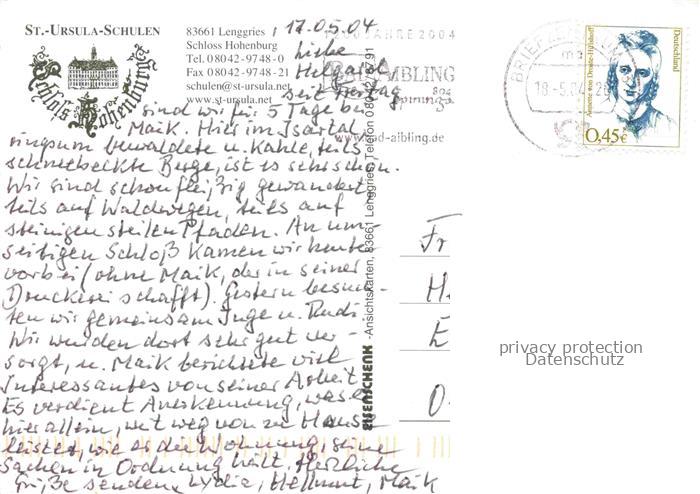 ST.-URSULA-SCHULEN
Schloss Hohenburg
83661 Lenggries
Schloss Hohenburg
Tel. 08042-9748-0
Fax 08042-9748-21
schulen@st-ursula.net
www.st-ursula.net
17.05.04
Liebe
Helgard,
seit Freitag
sind wir für 5 Tage bei
Maik. Hier im Isartal,
ringsum bewaldete u. kahle, teils
schneebedeckte Berge, ist es sehr schön.
Wir sind schon fleißig gewandert,
teils auf Waldwegen, teils auf
steinigen steilen Pfaden. Am
seitigen Schloß kamen wir heute
vorbei (ohne Maik, der in seiner
Druckerei schafft). Gestern besuch-
ten wir gemeinsam Inge u. Rudi.
Wir wurden dort sehr gut ver-
sorgt, u. Maik berichtete viel
Interessantes von seiner Arbeit.
Es verdient Anerkennung, was er
hier allein, weit weg von zu Hause
leistet, wie er die Wohnung, seine
Sachen in Ordnung hält. Herzliche
Grüße senden Lydia, Hellmut, Maik
JAHRE 2004
AIBLING
www.bad-aibling.de
EISENSCHENK -Ansichtskarten, 83661 Lenggries, Telefon 08042/8791
BRIEFZENTRUM
18.-5.04
Deutschland
Annette von Droste-Hülshoff
0,45€
Fr
H
E
O
privacy protection
Datenschutz